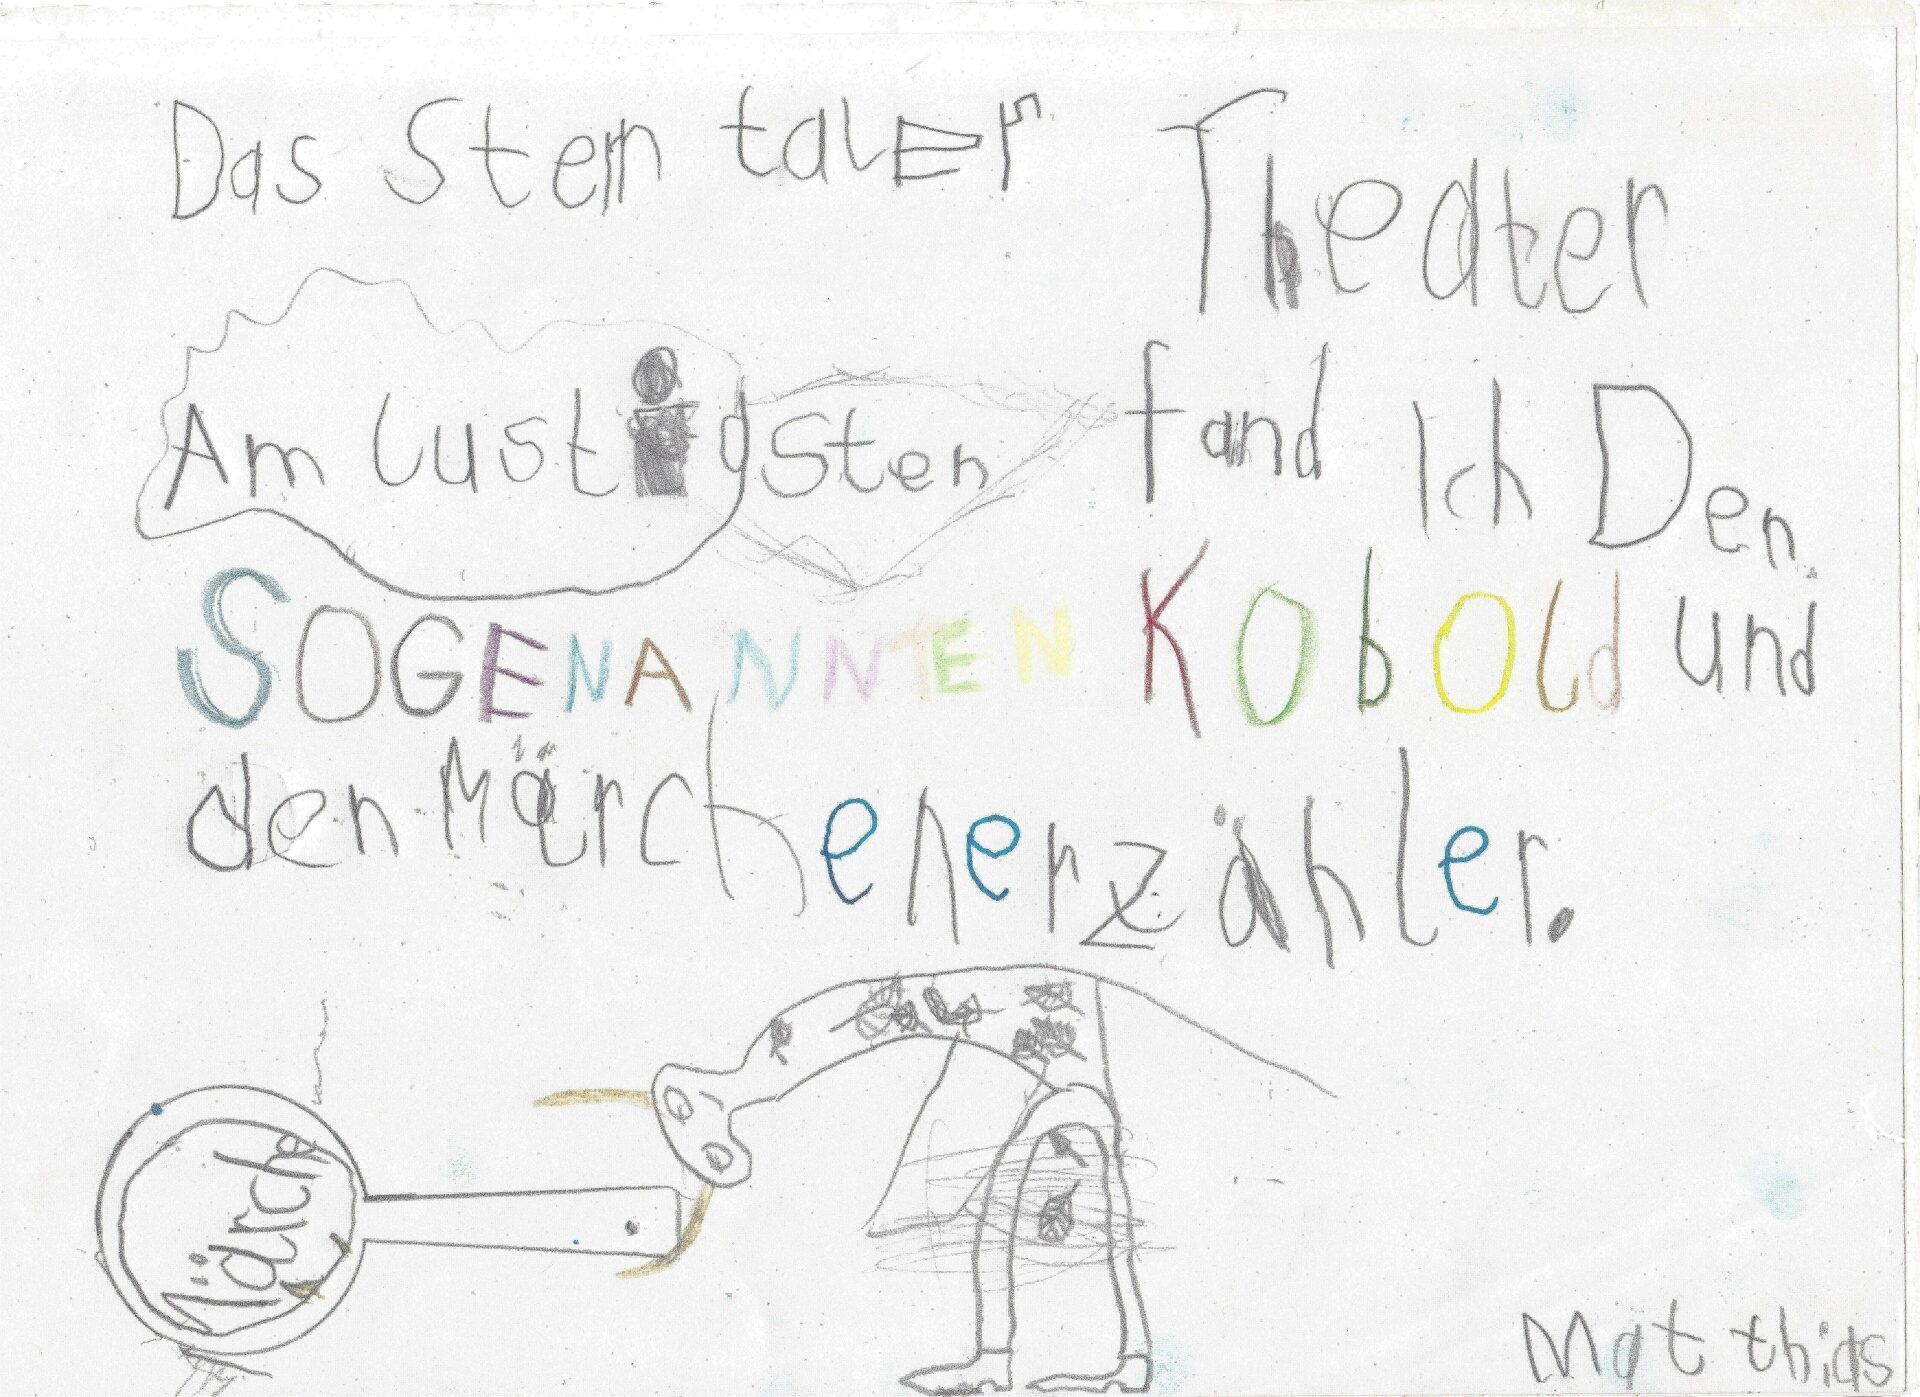 Das Stern taler Theater
Am lustigsten fand Ich Den
SOGENANNTEN KObOld und
den Märchenerzähler.
Märche
Matthias